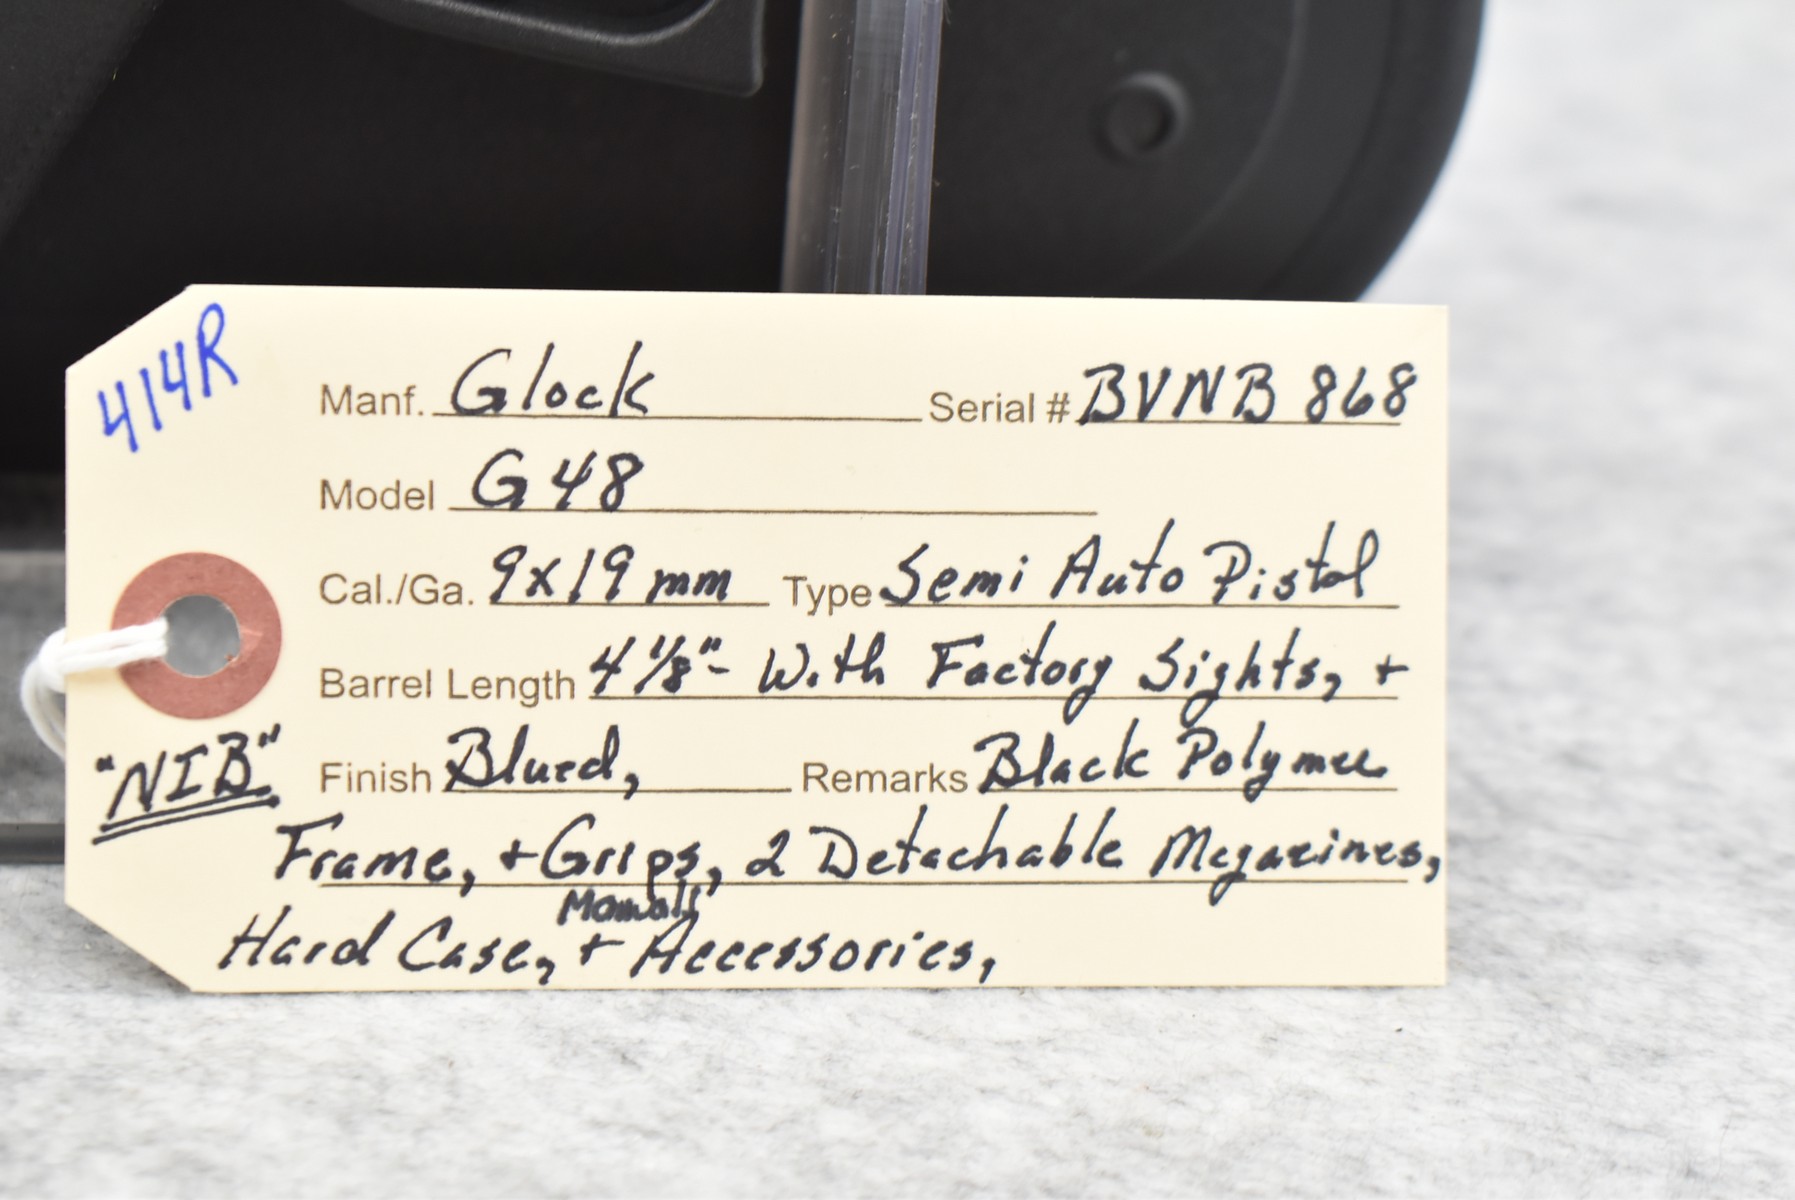 414R
Manf. Glock Serial # BVNB 868
Model G48
Cal./Ga. 9x19 mm Type Semi Auto Pistol
Barrel Length 4 1/8"- With Factory Sights, +
"NIB" Finish Blued, Remarks Black Polymer
Frame, + Grips, 2 Detachable Magazines,
Hard Case, + Accessories,